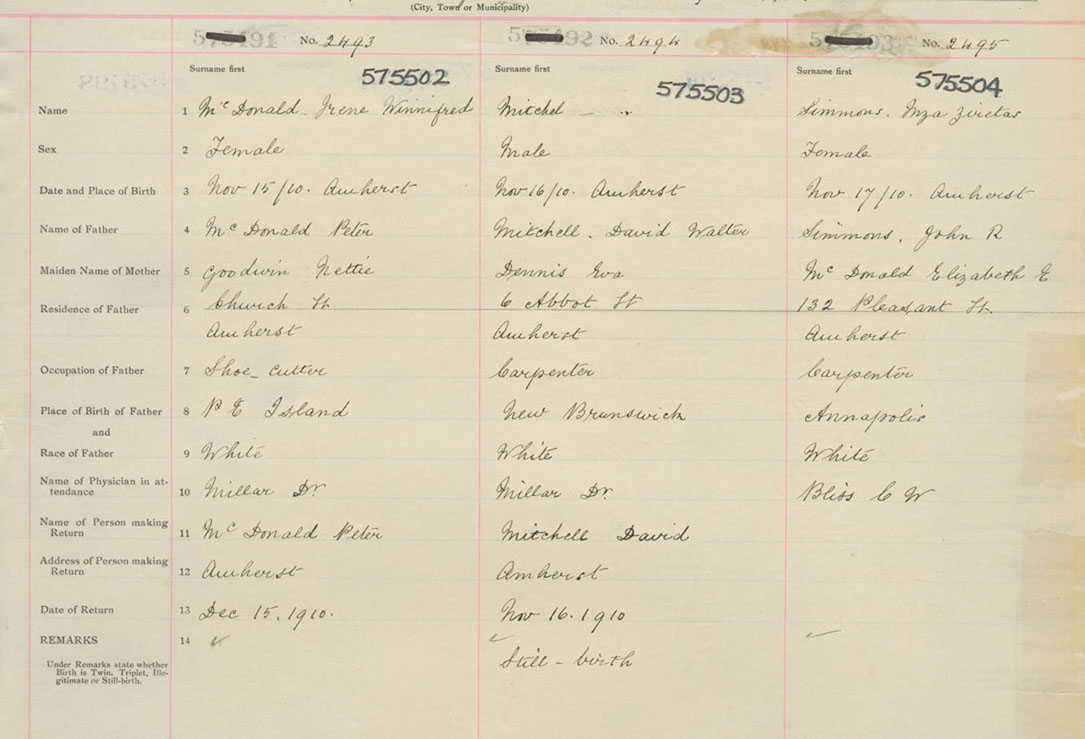 (City, Town or Municipality)
No. 2493 No. 2494 No. 2495
Surname first Surname first Surname first
575502 575503 575504
Name 1 Mc Donald Irene Winnifred Mitchel — .. Simmons.
Sex 2 Female Male Female
Date and Place of Birth 3 Nov 15/10. Amherst Nov 16/10. Amherst Nov 17/10. Amherst
Name of Father 4 Mc Donald Peter Mitchell. David Walter Simmons. John R
Maiden Name of Mother 5 Goodwin Nettie Dennis Eva Mc Donald Elizabeth E
Residence of Father 6 Church St 6 Abbot St 132 Pleasant St.
Amherst Amherst Amherst
Occupation of Father 7 Shoe - cutter Carpenter Carpenter
Place of Birth of Father 8 P E Island New Brunswick Annapolis
and
Race of Father 9 White White White
Name of Physician in at-
tendance 10 Millar Dr. Millar Dr. Bliss C W
Name of Person making
Return 11 Mc Donald Peter Mitchell David
Address of Person making
Return 12 Amherst Amherst
Date of Return 13 Dec 15. 1910. Nov 16. 1910
REMARKS 14
Under Remarks state whether
Birth is Twin, Triplet, Ille-
gitimate or Still-birth.
Still - birth